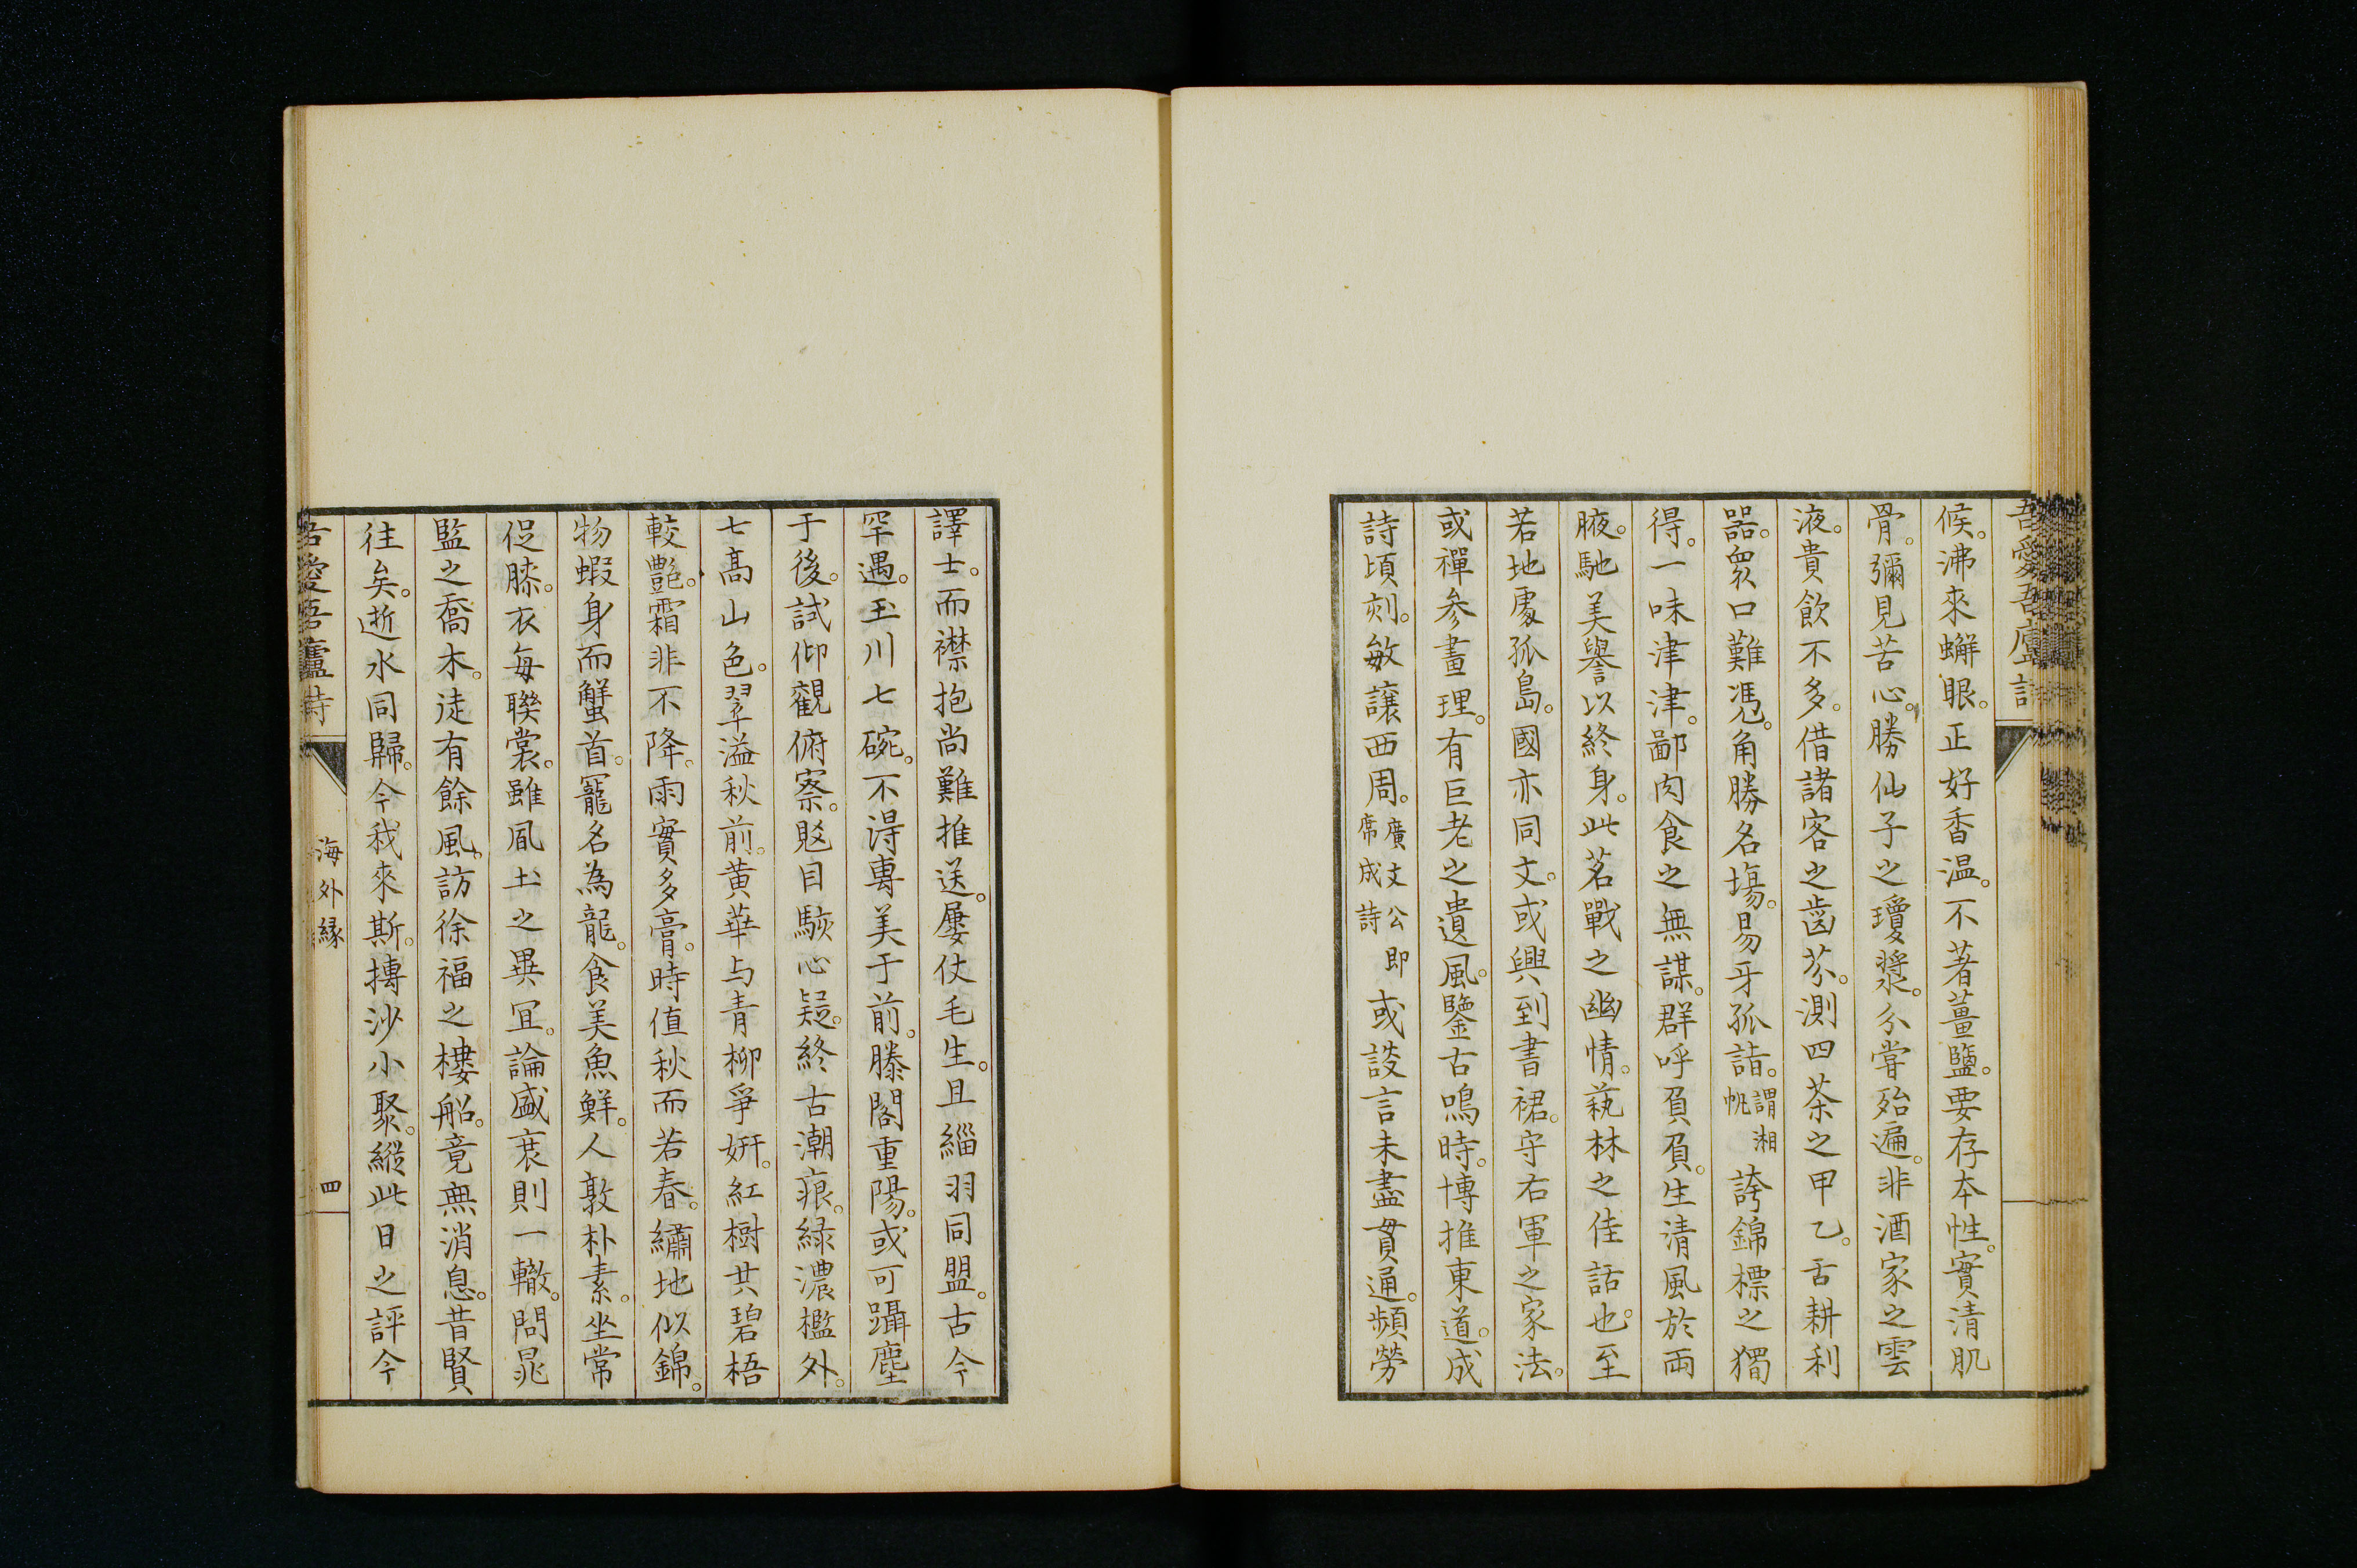 吾愛吾廬詩
候。沸來蠏眼。正好香温。不著薑鹽。要存本性。實清肌
骨。彌見苦心。勝仙子之瓊漿。分嘗殆遍。非酒家之雲
液。貴飲不多。借諸客之齒芬。測四茶之甲乙。舌耕利
器。衆口難馮。角勝名塲。易牙孤詣。謂湘帆誇錦標之獨
得。一味津津。鄙肉食之無謀。群呼負負。生清風於兩
腋。馳美譽以終身。此茗戰之幽情。蓺林之佳話也。至
若地處孤島。國亦同文。或興到書裙。守右軍之家法。
或禪參畫理。有巨老之遺風。鑒古鳴時。博推東道。成
詩頃刻。敏讓西周。廣文公即席成詩或談言未盡貫通。頻勞
譯士。而襟抱尚難推送。屢仗毛生。且緇羽同盟。古今
罕遇。玉川七碗。不淂專美于前。滕閣重陽。或可躡塵
于後。試仰觀俯察。駭目駭心疑。終古潮痕。緑濃檻外。
七髙山色。翠溢秋前。黄華与青柳爭妍。紅樹共碧梧
較艷。霜非不降。雨實多膏。時值秋而若春。繡地似錦。
物蝦身而蟹首。寵名為龍。食美魚鮮。人敦朴素。坐常
促膝。衣每聯裳。雖風土之異冝。論盛衰則一轍。問晁
監之喬木。徒有餘風。訪徐福之樓船。竟無消息。昔賢
往矣。逝水同歸。今我來斯。摶沙小聚。縱此日之評今
吾愛吾廬詩
海外緣
四